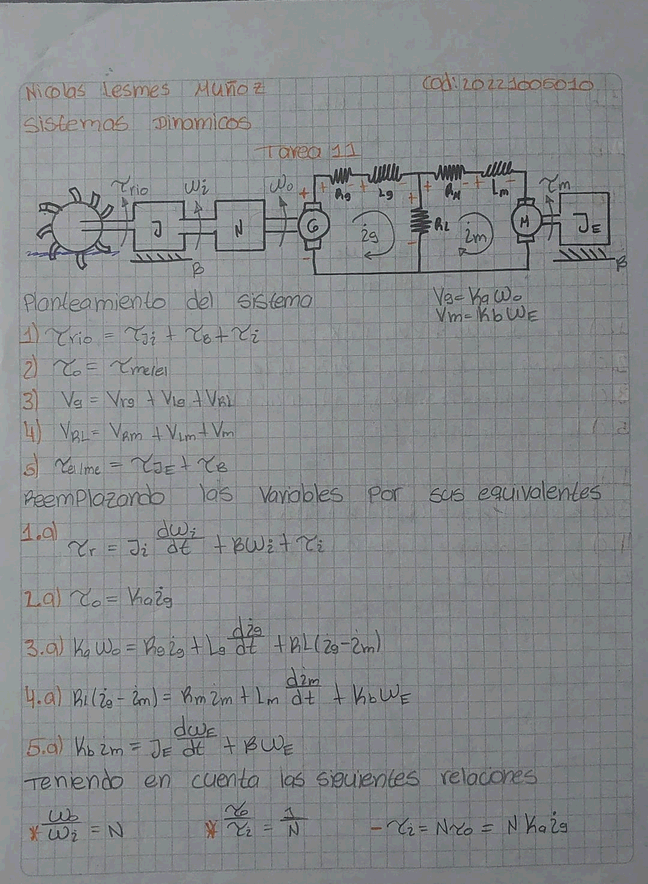 Nicolas Lesmes Muñoz cod:20221005010
Sistemas Dinamicos
Tarea 11
τrio ωi ωo Rg Lg RM Lm τm
J N G ig RL im M JE
B B
Planteamiento del sistema
Vg=Kaωo
Vm=KbωE
1) τrio = τJi + τB + τi
2) τo = τmelei
3) Vg = Vrg + Vlg + VRL
4) VRL = VRm + VLm + Vm
5) τelme = τJE + τB
Reemplazando las variables por sus equivalentes
1.a) τr = Ji dωi/dt + Bωi + τi
2.a) τo = Kaig
3.a) Kaωo = Rgig + Lg dig/dt + RL(ig-im)
4.a) Rl(ig-im) = Rmim + Lm dim/dt + KbωE
5.a) Kbim = JE dωE/dt + BωE
Teniendo en cuenta las siguientes relaciones
* ωo/ωi = N * τo/τi = 1/N - τi = Nτo = NKaig